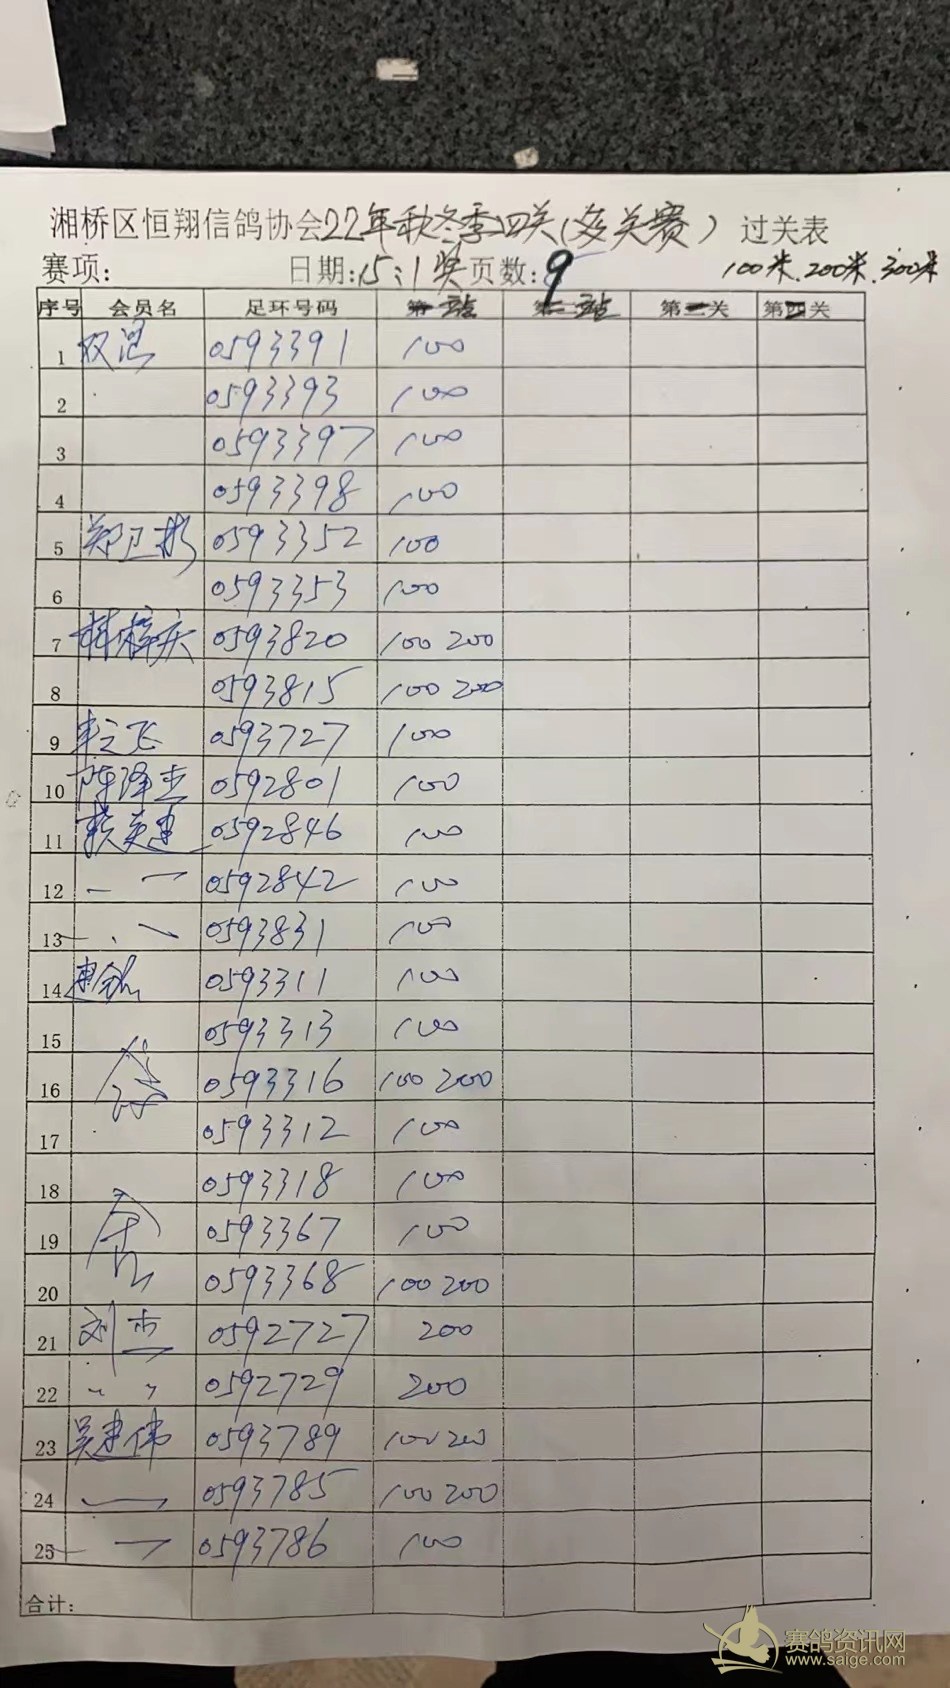 湘桥区恒翔信鸽协会22年秋冬季四关(多关赛) 过关表
赛项: 日期:15:1奖 页数:9 100米.200米.300米
序号 会员名 足环号码 第一站 第二站 第三关 第四关
1 双鸿 0593391 100
2 0593393 100
3 0593397 100
4 0593398 100
5 郑卫彬 0593352 100
6 0593353 100
7 林梓庆 0593820 100 200
8 0593815 100 200
9 飞 0593727 100
10 陈泽杰 0592801 100
11 英建 0592846 100
12 0592842 100
13 0593831 100
14 0593311 100
15 0593313 100
16 0593316 100 200
17 0593312 100
18 0593318 100
19 0593367 100
20 0593368 100 200
21 刘杰 0592727 200
22 〃 〃 0592729 200
23 吴建伟 0593789 100 200
24 0593785 100 200
25 0593786 100
合计:
赛鸽资讯网
www.saige.com